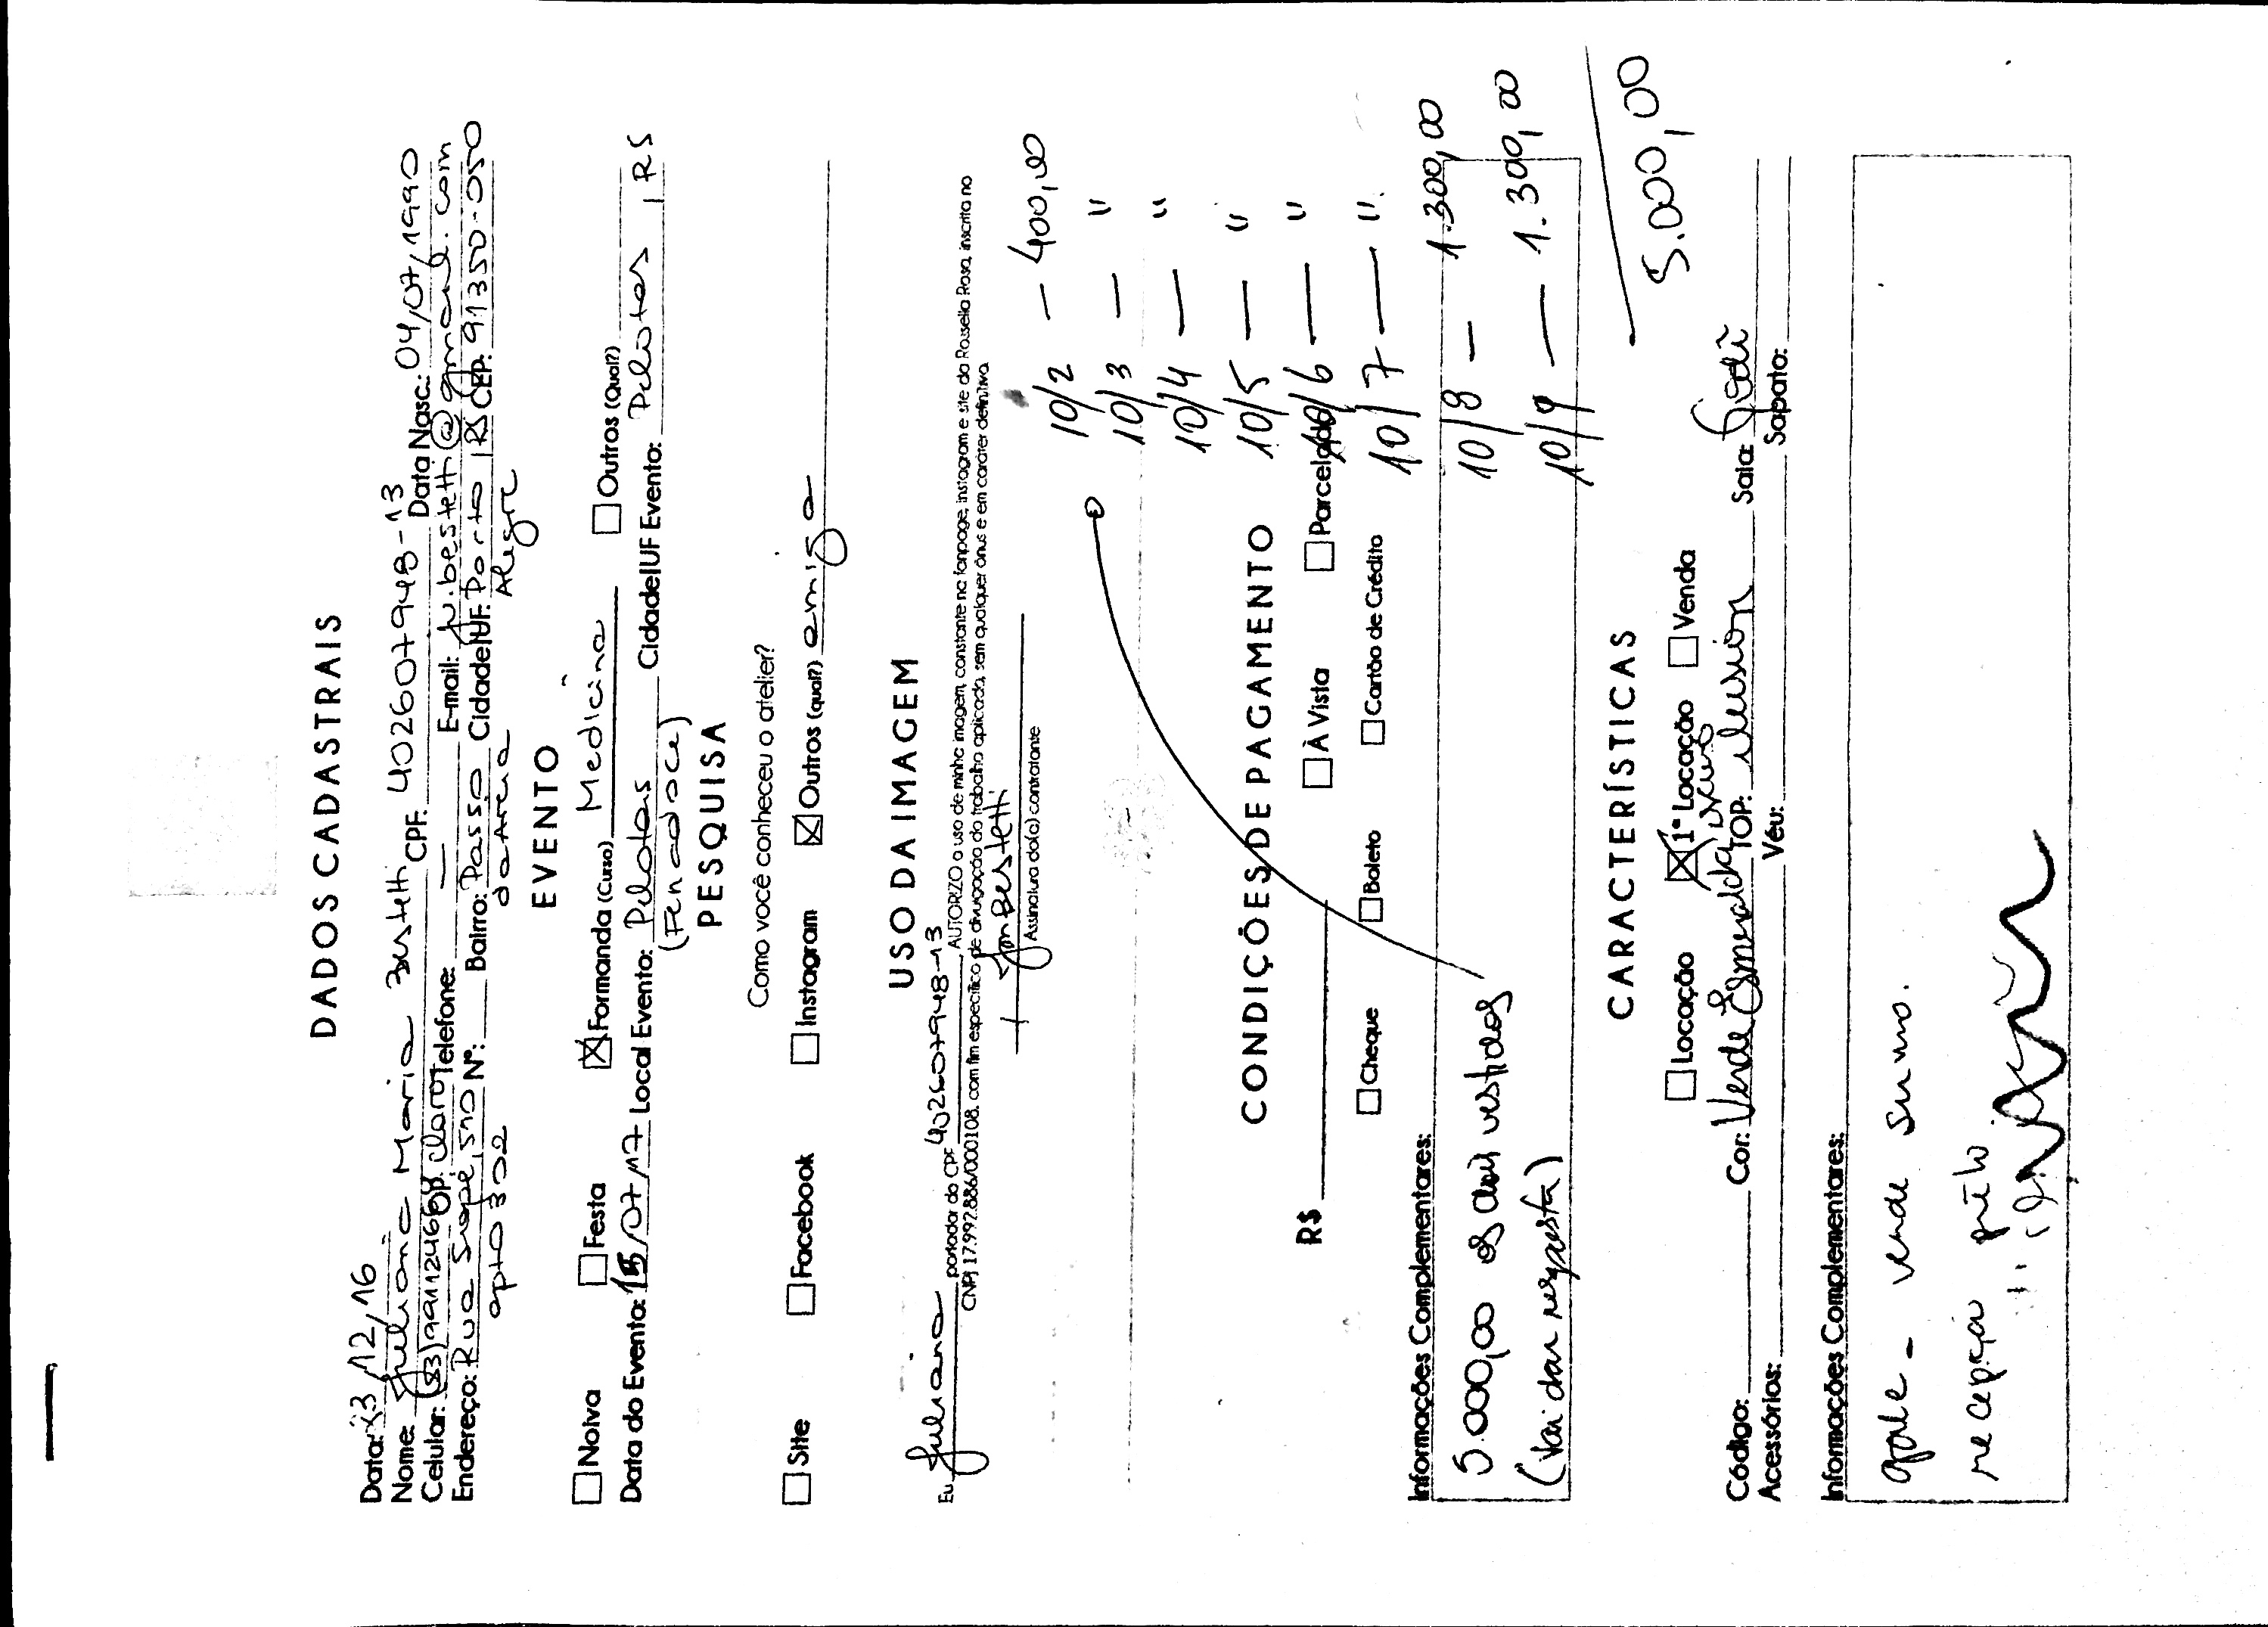 DADOS CADASTRAIS
Data: 23/12/16
Nome: Juliana Maria Bestetti CPF: 402607948-13 Data Nasc.: 04/07/1990
Celular: (53) 99112466 OP. Claro Telefone: — E-mail: ju.bestetti@gmail.com
Endereço: Rua Nº: Bairro: Passo Cidade|UF: Porto | RS CEP: 91350-050
apto 302 da Areia Alegre
EVENTO
Noiva Festa Formanda (Curso) Medicina Outros (Qual?)
Data do Evento: 15/07/17 Local Evento: Pelotas Cidade|UF Evento: Pelotas | RS
(Fenadoce)
PESQUISA
Como você conheceu o atelier?
Site Facebook Instagram Outros (qual?) amiga
USO DA IMAGEM
Eu Juliana portador do CPF 402607948-13, AUTORIZO o uso de minha imagem, constante na fanpage, instagram e site da Rossella Rosa, inscrita no
CNPJ 17.992.886/000108, com fim específico de divulgação do trabalho aplicado, sem qualquer ônus e em caráter definitivo.
Juh Bestetti
Assinatura do(a) contratante
10/2 — 400,00
10/3 — "
10/4 — "
10/5 — "
10/6 — "
10/7 — "
10/8 — 1.300,00
10/9 — 1.300,00
5.000,00
CONDIÇÕES DE PAGAMENTO
R$ À Vista Parcelado
Cheque Boleto Cartão de Crédito
Informações Complementares:
5.000,00 os dois vestidos
(Vai dar resposta)
CARACTERÍSTICAS
Locação 1ª Locação Venda
Código: Cor: Verde Esmeralda TOP: ilusion Saia: Godê
Acessórios: Véu: Sapato:
Informações Complementares:
gale - verde sumo.
recepção preto